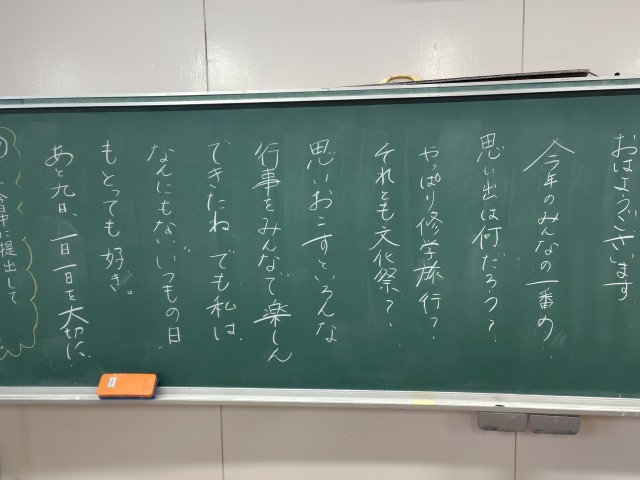 おはようございます
今年のみんなの一番の
思い出は何だろう?
やっぱり修学旅行?
それとも文化祭?
思いおこすといろんな
行事をみんなで楽しん
できたね。でも私は、
なんにもないいつもの日
もとっても好き。
あと九日、一日一日を大切に。
中に提出して